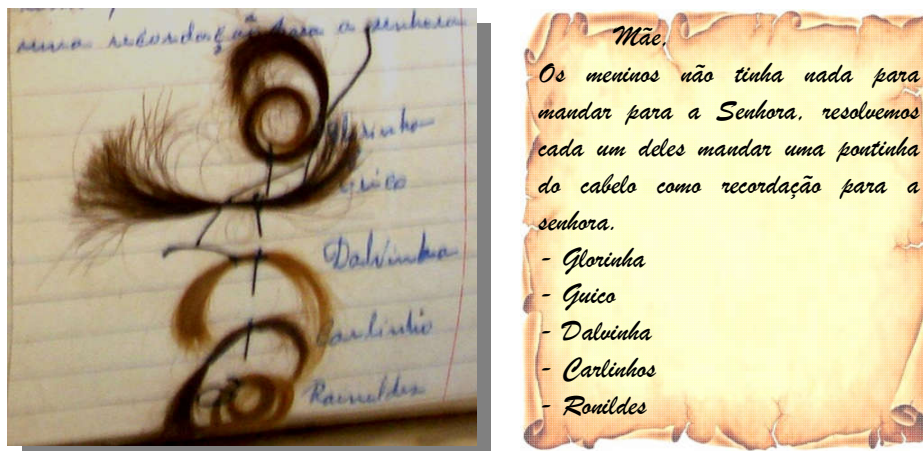 uma recordação para a senhora
Glorinha
Guico
Dalvinha
Carlinho
Mãe,
Os meninos não tinha nada para
mandar para a Senhora, resolvemos
cada um deles mandar uma pontinha
do cabelo como recordação para a
senhora.
- Glorinha
- Guico
- Dalvinha
- Carlinhos
- Ronildes